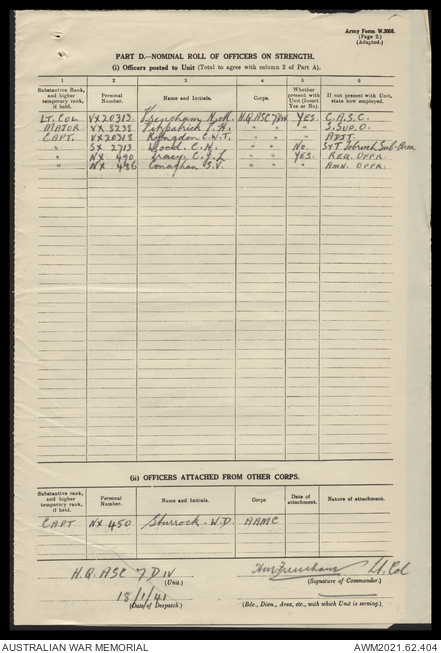 Army Form W.3008.
(Page 2.)
(Adapted.)
PART D.—NOMINAL ROLL OF OFFICERS ON STRENGTH.
(i) Officers posted to Unit (Total to agree with column 2 of Part A).
1 2 3 4 5 6
Substantive Rank, and higher temporary rank, if held. Personal Number. Name and Initials. Corps. Whether present with Unit (Insert Yes or No). If not present with Unit, state how employed.
LT. COL VX 20313. Frencham H.M. H.Q. ASC 7 DIV YES. C.A.S.C.
MAJOR VX 8238 Fitzpatrick T.A. " " " S. SUP. O.
CAPT. VX 20318 C.W.T. " " " ADJT.
" SX 2713 Wood. C.N. " " No. S & T Tobruch Sub-Area
" NX 490 Tracey C.J.L " " YES. REQ. OFFR.
" NX 486 Conaghan S.V. " " " AMN. OFFR.
(ii) OFFICERS ATTACHED FROM OTHER CORPS.
Substantive rank, and higher temporary rank, if held. Personal Number. Name and Initials. Corps Date of attachment. Nature of attachment.
CAPT NX 450 Sturrock. W.D. AAMC
H.Q. ASC 7 DIV HMFrencham Lt. Col
(Unit.) (Signature of Commander.)
18/1/41
(Date of Despatch.) (Bde., Divn., Area, etc., with which Unit is serving.)
AUSTRALIAN WAR MEMORIAL AWM2021.62.404